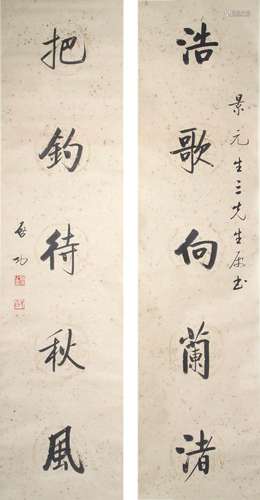 浩歌向蘭渚
景元生三先生屬書
把釣待秋風
啓功